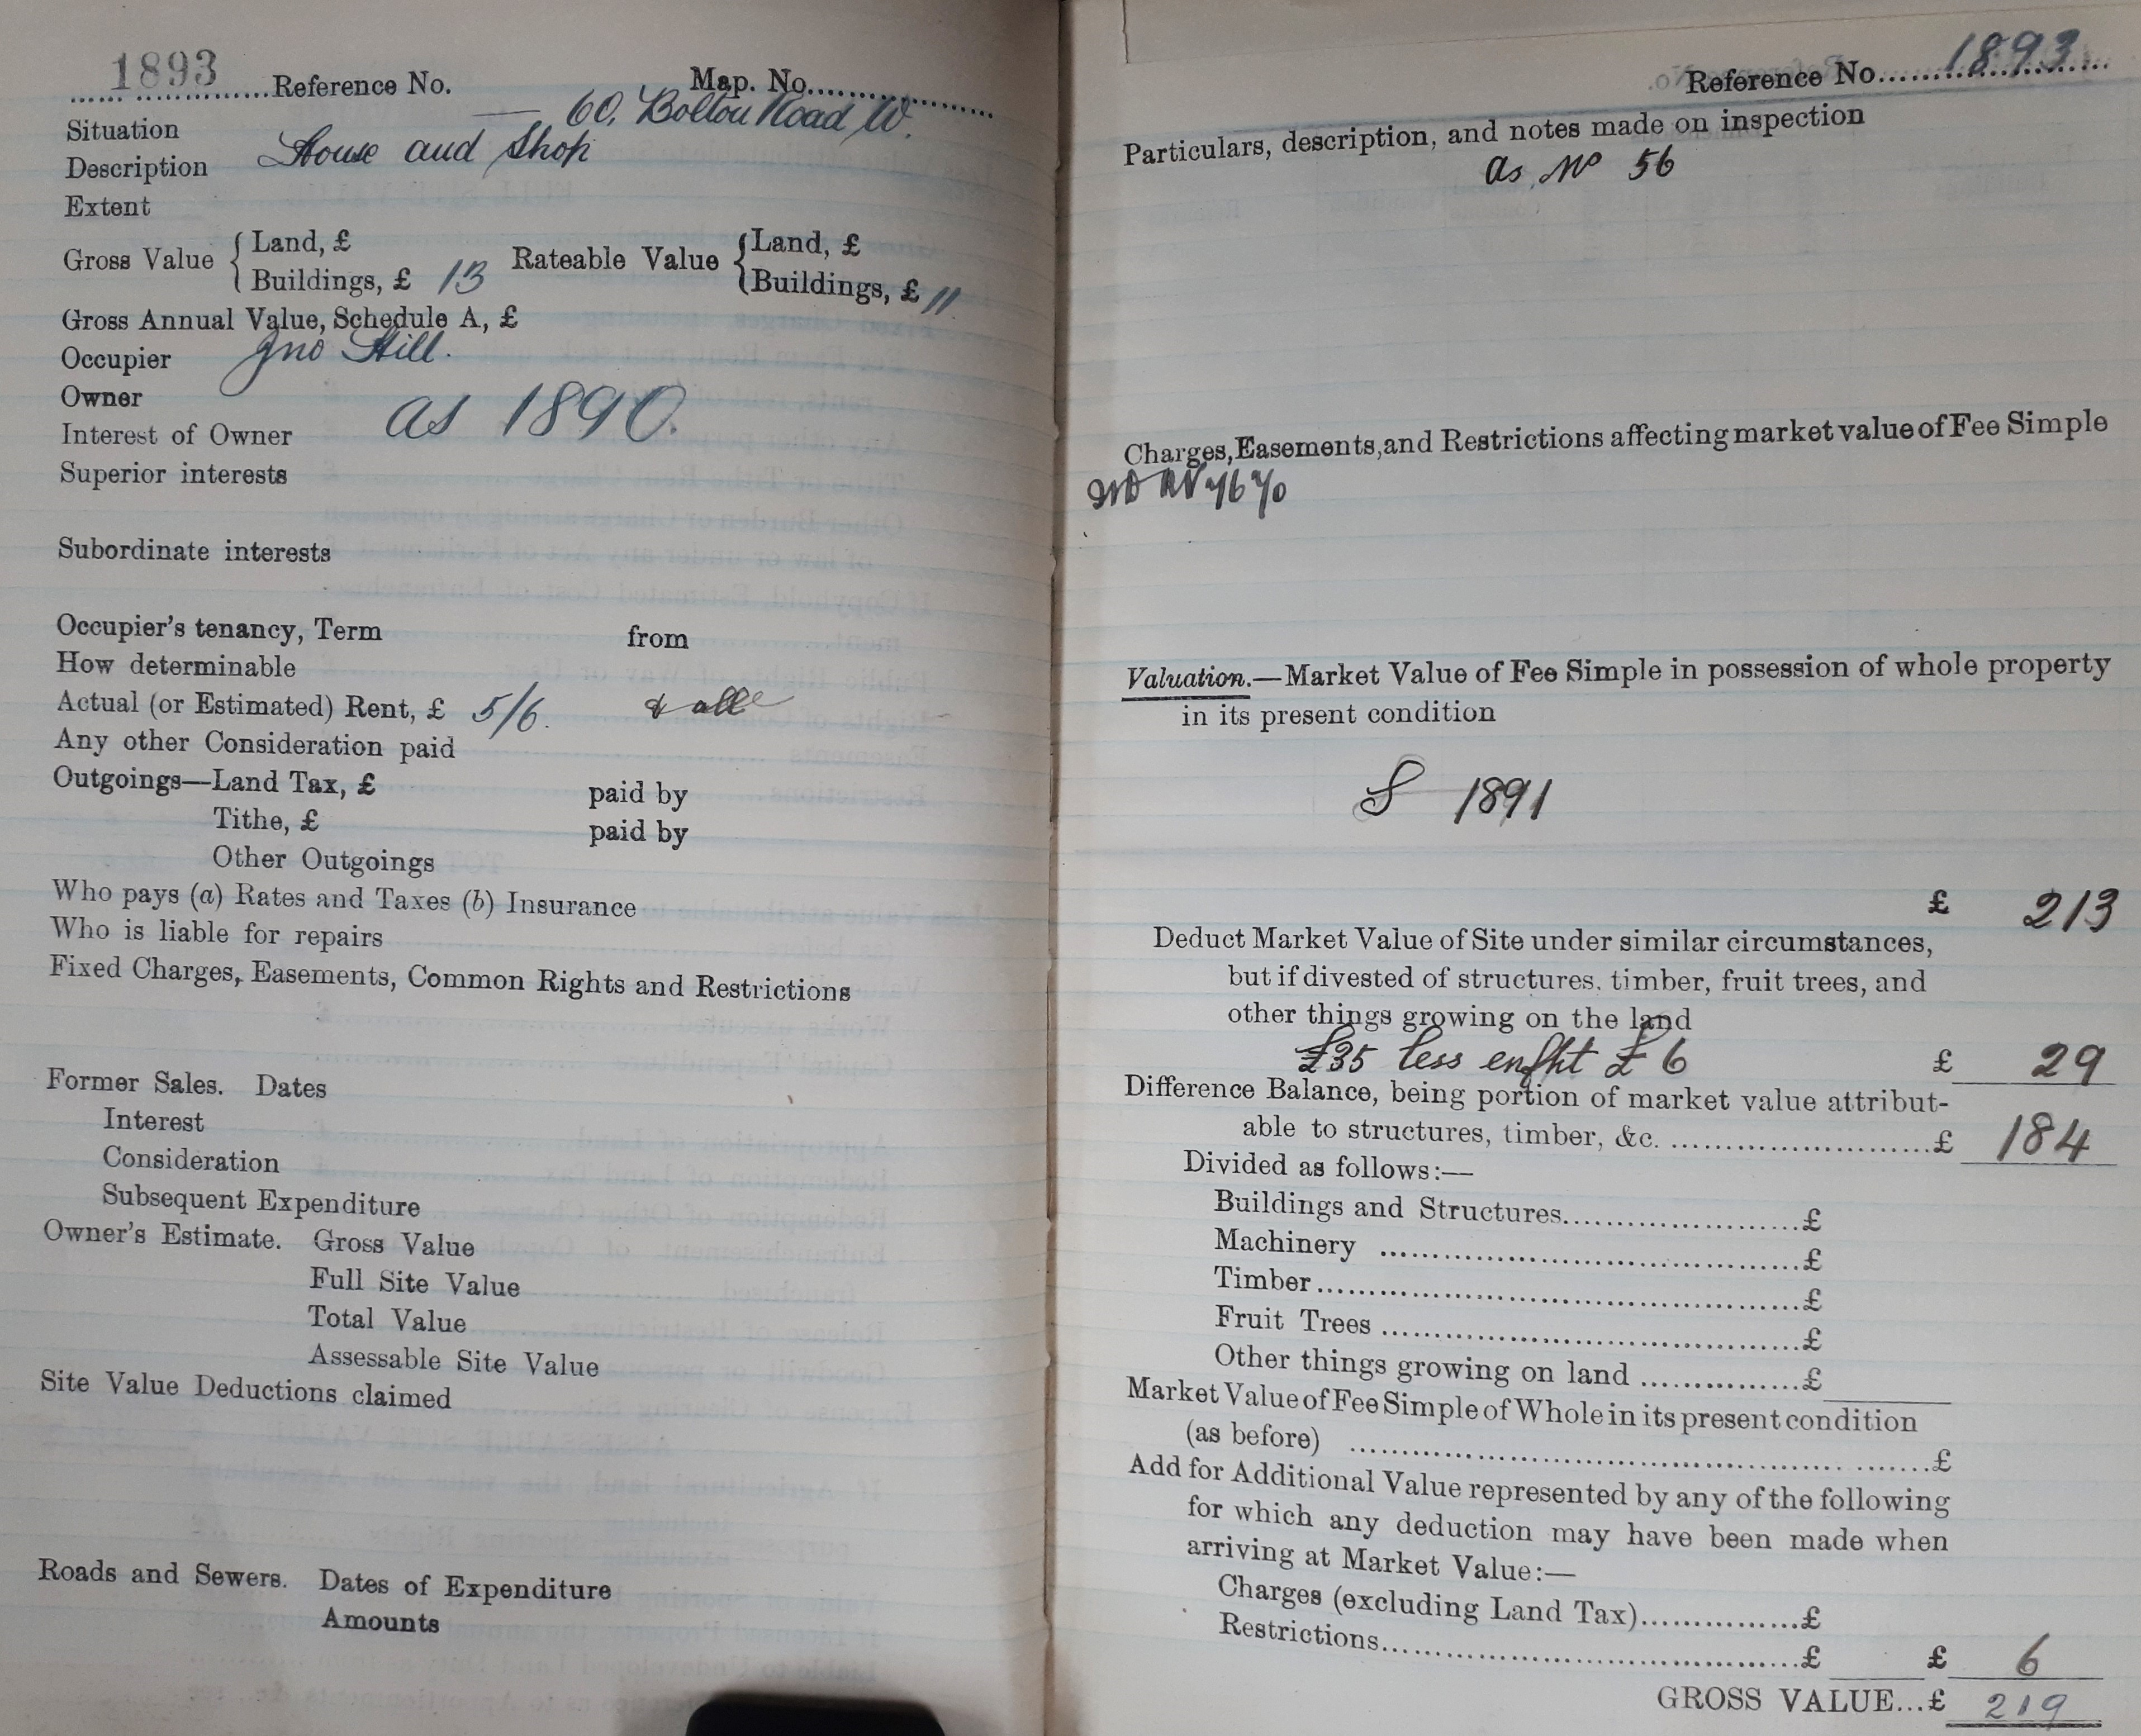 1893 Reference No. Map. No.
Situation — 60, Bolton Road W.
Description House and Shop
Extent
Gross Value { Land, £ Rateable Value { Land, £
Buildings, £ 13 Buildings, £ 11
Gross Annual Value, Schedule A, £
Occupier Jno Hill.
Owner as 1890.
Interest of Owner
Superior interests
Subordinate interests
Occupier's tenancy, Term from
How determinable
Actual (or Estimated) Rent, £ 5/6.
Any other Consideration paid
Outgoings—Land Tax, £ paid by
Tithe, £ paid by
Other Outgoings
Who pays (a) Rates and Taxes (b) Insurance
Who is liable for repairs
Fixed Charges, Easements, Common Rights and Restrictions
Former Sales. Dates
Interest
Consideration
Subsequent Expenditure
Owner's Estimate. Gross Value
Full Site Value
Total Value
Assessable Site Value
Site Value Deductions claimed
Roads and Sewers. Dates of Expenditure
Amounts
Reference No. 1893
Particulars, description, and notes made on inspection
as No 56
Charges, Easements, and Restrictions affecting market value of Fee Simple
Valuation.—Market Value of Fee Simple in possession of whole property
in its present condition
S 1891
£ 213
Deduct Market Value of Site under similar circumstances,
but if divested of structures, timber, fruit trees, and
other things growing on the land
£35 less enfht £6 £ 29
Difference Balance, being portion of market value attribut-
able to structures, timber, &c. £ 184
Divided as follows:—
Buildings and Structures £
Machinery £
Timber £
Fruit Trees £
Other things growing on land £
Market Value of Fee Simple of Whole in its present condition
(as before) £
Add for Additional Value represented by any of the following
for which any deduction may have been made when
arriving at Market Value:—
Charges (excluding Land Tax) £
Restrictions £ £ 6
GROSS VALUE...£ 219